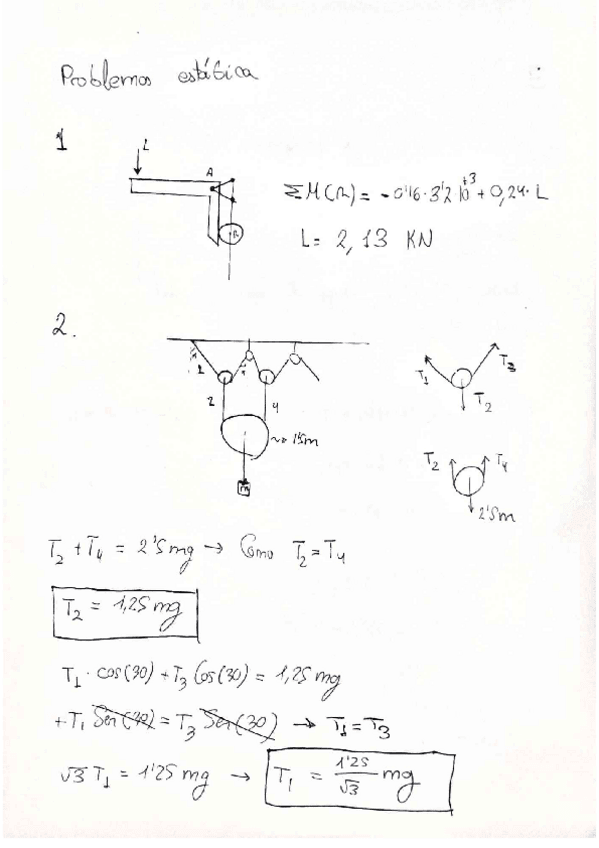 Problemas estática
1
L
A
R
ΣM(A) = -0'16·3'2 10^+3 + 0,24·L
L = 2,13 KN
2.
1
2
4
1'5m
m
T1
T3
T2
T2
T4
2'5m
T2 + T4 = 2'5mg → Como T2 = T4
T2 = 1,25 mg
T1 · cos(30) + T3 Cos(30) = 1,25 mg
+T1 Sen(30) = T3 Sen(30) → T1 = T3
√3 T1 = 1'25 mg → T1 = 1'25/√3 mg